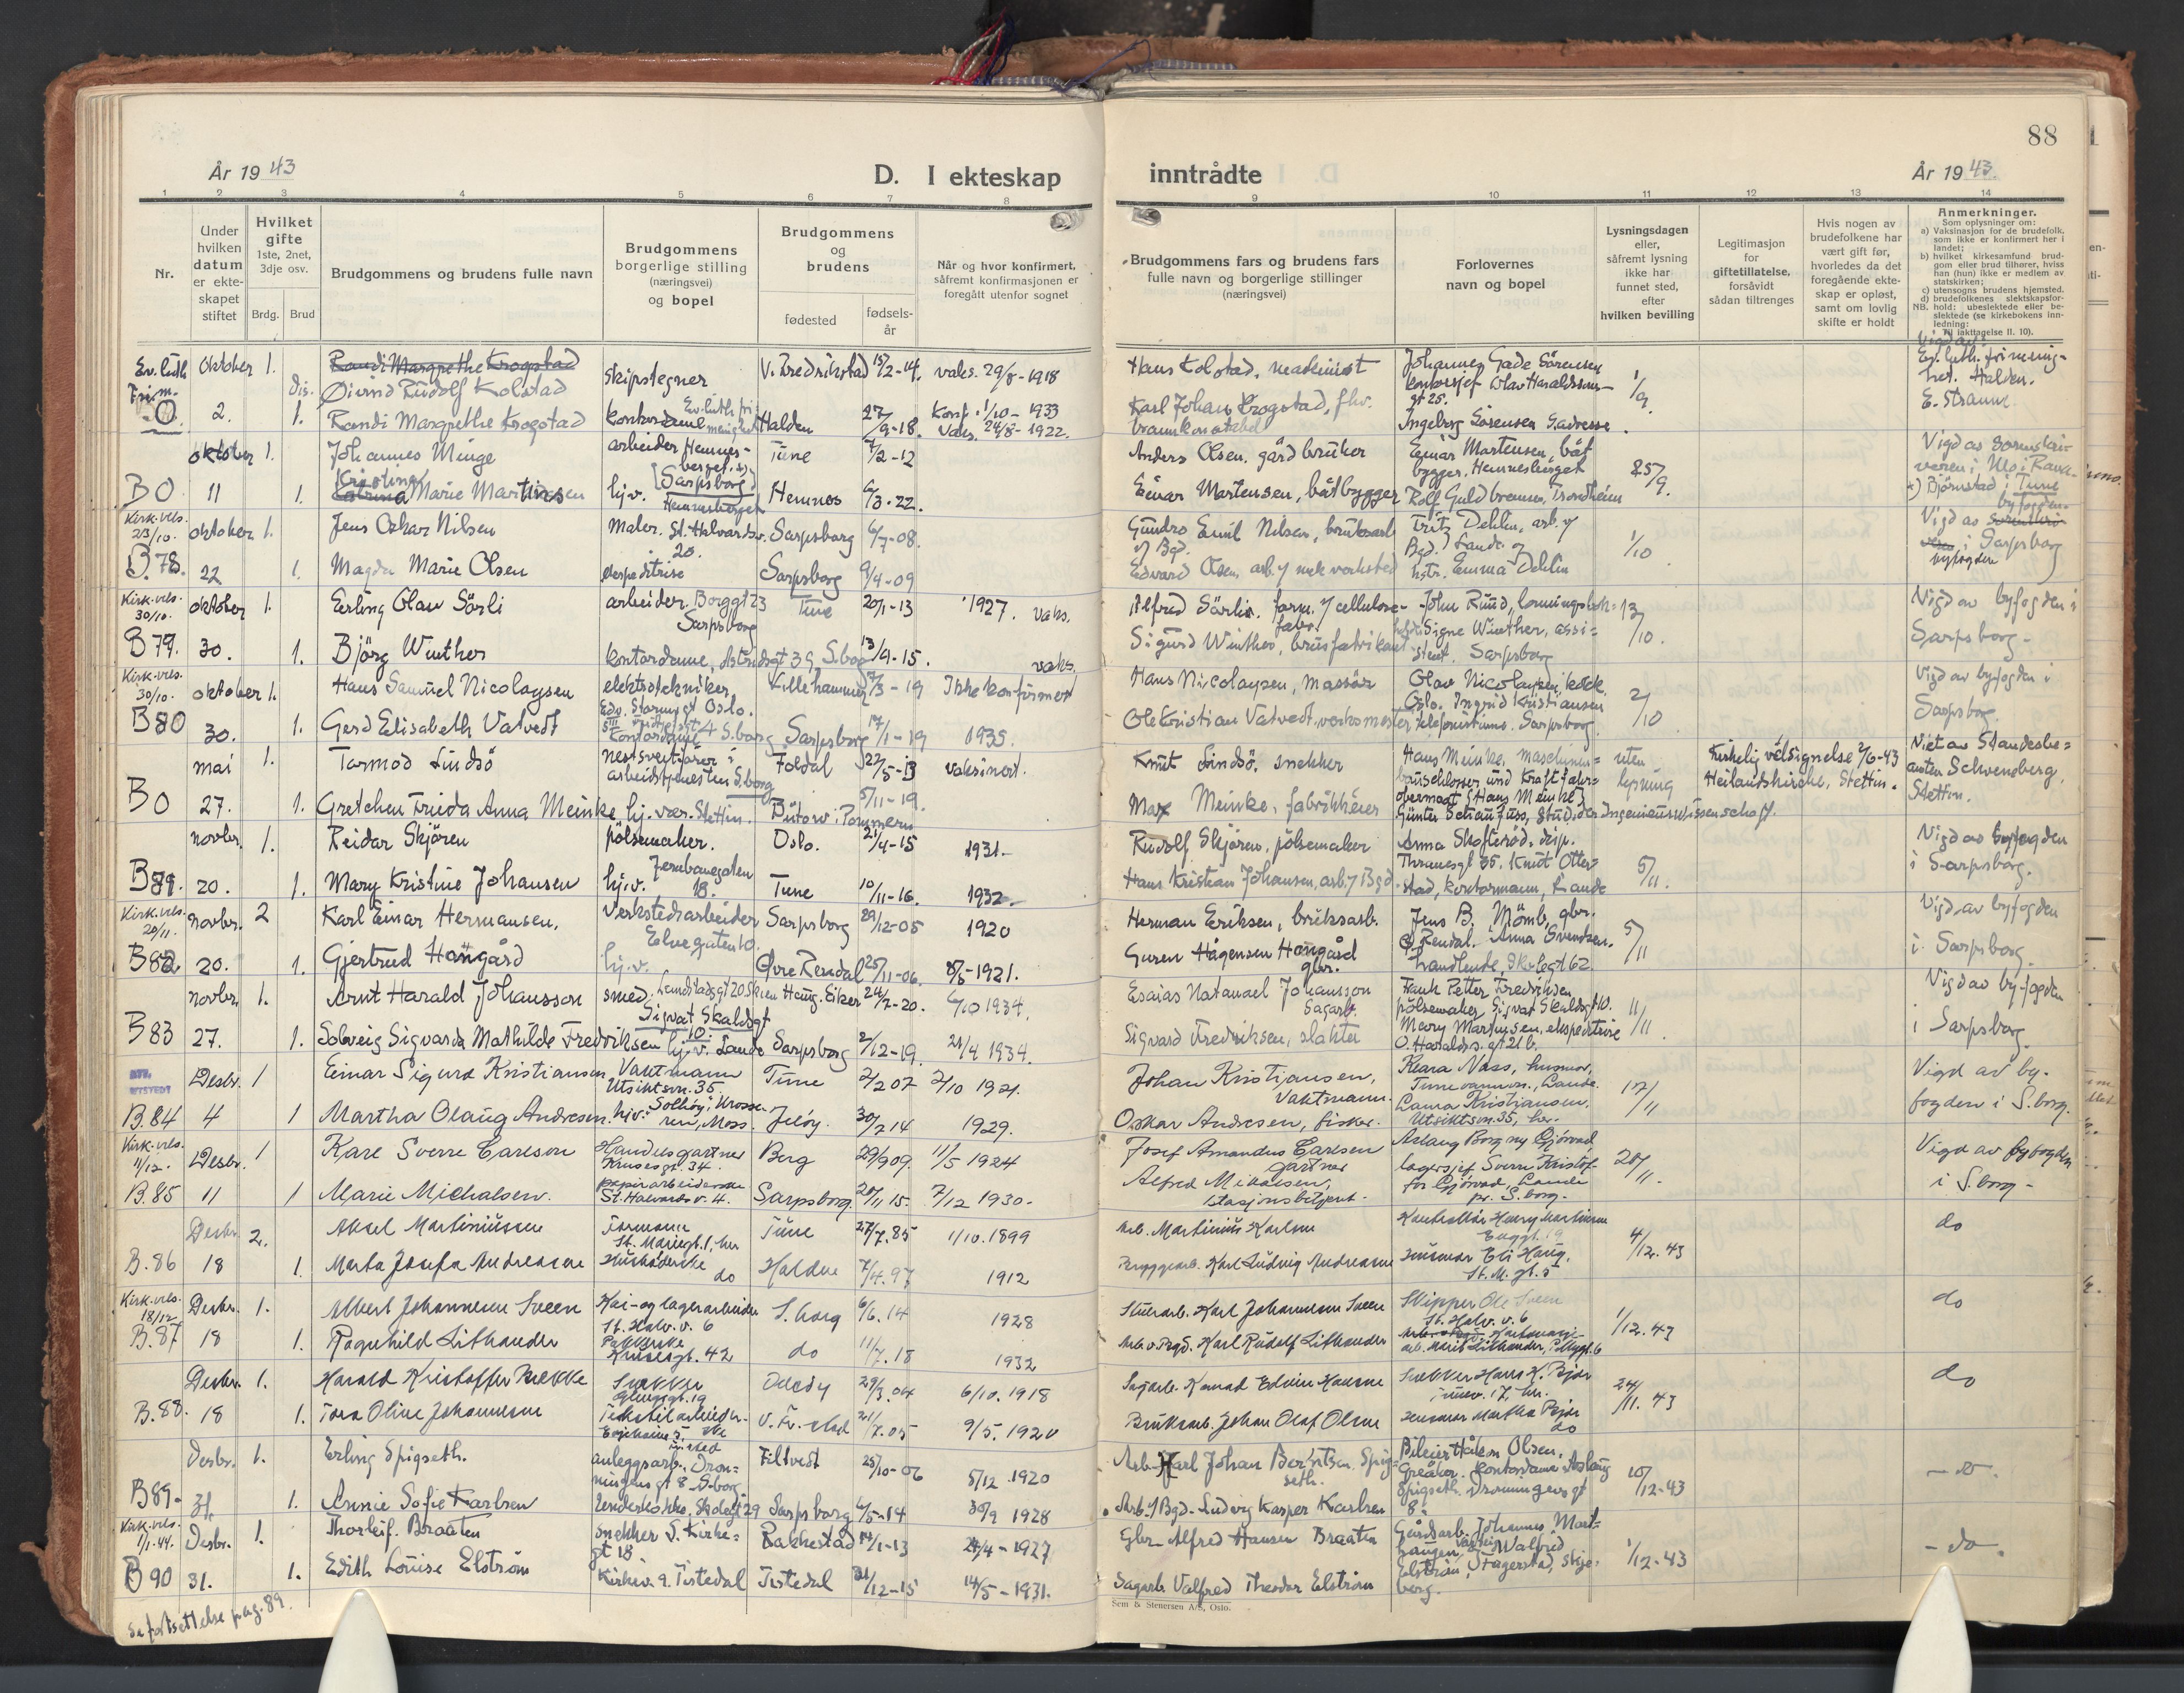 88
År 1943
D. I ekteskap inntrådte
År 1943.
1 2 3 4 5 6 7 8 9 10 11 12 13 14
Nr.
Under hvilken datum er ekte-skapet stiftet
Hvilket gifte 1ste, 2net, 3dje osv.
Brdg. Brud
Brudgommens og brudens fulle navn
Brudgommens borgerlige stilling (næringsvei) og bopel
Brudgommens og brudens
fødested
fødsels-år
Når og hvor konfirmert, såfremt konfirmasjonen er foregått utenfor sognet
Brudgommens fars og brudens fars fulle navn og borgerlige stillinger (næringsvei)
Forlovernes navn og bopel
Lysningsdagen eller, såfremt lysning ikke har funnet sted, efter hvilken bevilling
Legitimasjon for giftetillatelse, forsåvidt sådan tiltrenges
Hvis nogen av brudefolkene har vært gift før, hvorledes da det foregående ekte-skap er opløst, samt om lovlig skifte er holdt
Anmerkninger.
Som oplysninger om:
a) Vaksinasjon for de brudefolk, som ikke er konfirmert her i landet;
b) hvilket kirkesamfund brud-gom eller brud tilhører, hviss han (hun) ikke er medlem av statskirken;
c) utensogns brudens hjemsted.
d) brudefolkenes slektskapsfor-hold: ubeslektede eller be-slektede (se kirkebokens inn-ledning:
NB. Til iakttagelse II. 10).
Ev. luth. Frim. O. oktober 2. 1. dis. 1.
Randi Margrethe Krogstad
Øivind Rudolf Kolstad skipstegner V. Fredrikstad 15/2-14. vaks. 29/8-1918
Randi Margrethe Krogstad kontordame Ev. luth. fri menighet Halden 27/9-18. Konf. 1/10-1933 Vaks. 24/8-1922.
Hans Kolstad, maskinist
Karl Johan Krogstad, fhv.
Johannes Gade Sørensen
kontorsjef Olav Haraldsson-gt 25.
Ingeborg Sørensen S.adresse.
1/9.
Ev. luth. frimenig-het. Halden.
E. Strann
BO oktober 11 1. 1.
Johannes Minge arbeider Hemnes-berget. Sarpsborg Tune 7/2-12
Kristina Marie Martinsen hj.v. Hemnesberget Hemnes 6/3-22.
Anders Olsen, gårdbruker
Einar Martensen, båtbygger
Einar Martensen, båt
bygger, Hemnesberget
Rolf Guldbransen, Trondheim
25/9.
Vigd av sorenskri-
veren i
Bjørnstad i Tune
Kirk. vels. 23/10. B.78. oktober 22 1. 1.
Jens Oskar Nilsen Maler. St. Halvardsv. 20. Sarpsborg 6/7-08.
Magda Marie Olsen ekspeditrise Sarpsborg 9/4-09
Gundro Emil Nilsen, bruksarb
v/ Bgd.
Edvard Olsen, arb. v/ mek verksted
Fritz Dehlin, arb. v/
Bgd. Lande og
hstr. Emma Dehlin
1/10
Vigd av
i Sarpsborg
byfogden
Kirk. vels. 30/10. B 79. oktober 30. 1. 1.
Erling Olav Sörli arbeider. Borggt 23 Sarpsborg Tune 20/1-13 1927. vaks.
Björg Winther kontordame, Astridsgt 39, S.borg 13/9-15. vaks.
Alfred Sörlie, form. v/ cellulose-fabr.
Sigurd Winther, brusfabrikant
John Ruud,
Signe Winther, assi-
stent. Sarpsborg
13/10.
Vigd av byfogden i
Sarpsborg-
Kirk. vels. 30/10. B 80 oktober 30. 1. 1.
Hans Samuel Nicolaysen elektrotekniker Edv. Stormsgt Oslo. Lillehammer 17/3-19 Ikke konfirmert
Gerd Elisabeth Vatvedt kontordame S.borg Sarpsborg 17/1-19 1935.
Hans Nicolaysen, massör
Ole Kristian Vatvedt, verksmester
Olav Nicolaysen, kokk,
Oslo. Ingrid Kristiansen
telefonistinne. Sarpsborg
2/10
Vigd av byfogden i
Sarpsborg.
BO mai 27. 1. 1.
Tormod Lindsö nestsveitfører i arbeidstjenesten S.borg Foldal 22/5-13 vaksinert.
Gretchen Frieda Anna Meinke hj. vær. Stettin. Bütow i Pommern 5/11-19.
Knut Lindsö, snekker
Max Meinke, fabrikkeier
Hans Meinke, Maschinen-
bauschlosser und Kraftfahr-
obermaat (Hans Meinke)
Günter Schaufuss, Stud. der Ingenieurwissenschaft.
uten lysning
Kirkelig velsignelse 2/6-43
Heilandskirche, Stettin.
Viet av Standesbe-
amten Schwensberg,
Stettin.
B81. novbr. 20. 1. 1.
Reidar Skjören pölsemaker. Oslo. 21/4-15 1931.-
Mary Kristine Johansen hj.v. Jernbanegaten 18. Tune 10/11-16. 1932.
Rudolf Skjören, pölsemaker
Hans Kristian Johansen, arb. v/ Bgd.
Anna Skofteröd, disp.
Thranesgt 35. Knut Otter-
stad, kontormann, Lande
5/11.
Vigd av byfogden
i Sarpsborg.
Kirk. vels. 20/11. B82 novbr. 20. 2 1.
Karl Einar Hermansen, Verkstedsarbeider Elvegaten 10. Sarpsborg 29/12-05 1920
Gjertrud Hangård hj.v. Øvre Rendal 25/11-06. 8/5-1921.
Herman Eriksen, bruksarb.
Guren Hågensen Hangård
gbr.
Jens B. Mömb, gbr.
Ø. Rendal. Anna Svendsen.
Landlende, Skolegt 62
5/11
Vigd av byfogden
i Sarpsborg.
B83 novbr. 27. 1. 1.
Arnt Harald Johansson smed. Landstadsgt 20 Skien Haug. Eiker 24/7-20. 6/10 1934.
Sigvat Skaldsgt 10.
Solveig Sigvarda Mathilde Fredriksen hj.v. Lande Sarpsborg 2/12-19 28/4 1934.
Esaias Natanael Johansson
Sagarb.
Sigvard Fredriksen, slakter
Frank Petter Fredriksen
pölsemaker, Sigvat Skaldsgt 10.
Mary Martinsen, ekspeditrise
O. Haralds s. gt 21 b.
11/11
Vigd av by-fogden
i Sarpsborg.
B.84 Desbr. 4 1 1
Einar Sigurd Kristiansen, Vaktmann Utsiktsvn. 35 Tune 2/2 07 2/10 1921.
Martha Olaug Andresen. hjv. "Solhöy", Krosse-ren, Moss. Jelöy. 30/7 14 1929.
Johan Kristiansen,
Vaktmann.
Oskar Andresen, fisker.
Klara Næss, husmor,
Tunevannvn., Lande.
Laura Kristiansen,
Utsiktsvn. 35, her.
17/11
Vigd av by-
fogden i S.borg.
Kirk. vels. 11/12. B.85 Desbr. 11 1 1
Kåre Sverre Carlson Handelsgartner Krusesgt. 34. Berg 29/9 09. 11/5 1924
Marie Michalsen. papirarbeiderske St. Halvards v. 4. Sarpsborg. 20/11 15. 7/12 1930.
Josef Amandus Carlsen
gartner
Alfred Mikalsen,
stasjonsbetjent.
Aslaug Borgny Gjörvad
lagersjef Sverre Kristof-
fer Gjörvad, Lande
pr. S.borg.
20/11.
Vigd av byfogden
i S.borg-
B.86 Desbr. 18 2. 1.
Aksel Martiniussen Formann St. Mariegt. 1, her Tune 27/7.85 1/10.1899
Marta Josefa Andreasen Husholderske do Halden 7/4.97 1912
Arb. Martinius Karlsen
Bryggearb. Karl Ludvig Andreasen
Kontrollör Harry Martinsen
husmor Eli Haug,
St. M. gt. 5
4/12.43
do
Kirk. vels. 18/12 B.87 Desbr. 18 1. 1.
Albert Johannessen Sveen Kai- og lagerarbeider St. Halv. v. 6 S.borg 6/6.14 1928
Ragnhild Lithander Pakkerske Krusesgt. 42 do 11/7.18 1932
Karl Johannessen Sveen
Arb. v. Bgd. Karl Rudolf Lithander
Skipper Ole Sveen
St. Halv. v. 6
arb. Marit Lithander,
1/12.43
do
B.88. Desbr. 18 1. 1.
Harald Kristoffer Bekke Snekker Glengsgt. 19 29/3.04 6/10.1918
Tora Oline Johannessen Tekstilarbeider V. Fr.stad 21/7.05 9/5.1920
Sagarb. Konrad Edvin Hansen
Bruksarb. Johan Olaf Olsen
Snekker Hans K. Björ
Tunev. 17, her.
husmor Martha Björ
do
24/11.43
do
B89. Desbr. 31. 1. 1.
Erling Spigseth. anleggsarb. Dron-ningensgt 8 S.borg Filtvedt 25/10-06 5/12.1920
Annie Sofie Karlsen lenderkokke, Skolegt 29 Sarpsborg 6/5-14 30/9 1928
Arb. Karl Johan Berntsen Spig-
seth.
Arb. v/ Bgd. Ludvig Kasper Karlsen
Bileier Håkon Olsen,
Greåker. Kontordame Aslaug
Spigseth. Dronningensgt
8.
10/12-43
- do.
Kirk. vels. 1/1-44. B 90 Desbr. 31. 1. 1.
Thorleif. Braaten snekker S. Kirke-gt 18 Rakkestad 14/1-13 24/4-1927
Edith Louise Elström Kirkev. 9. Tistedal Tistedal 21/12-15 14/5-1931.
Gbr. Alfred Hansen Braaten
Sagarb. Valfred Theodor Elström
Gårdsarb. Johannes Mort-
haugen, Valfred
Elström, Fagerstad, Skje-
berg.
1/12-43
- do.
Se fortsettelse pag. 89.
Sem & Stenersen A/S, Oslo.